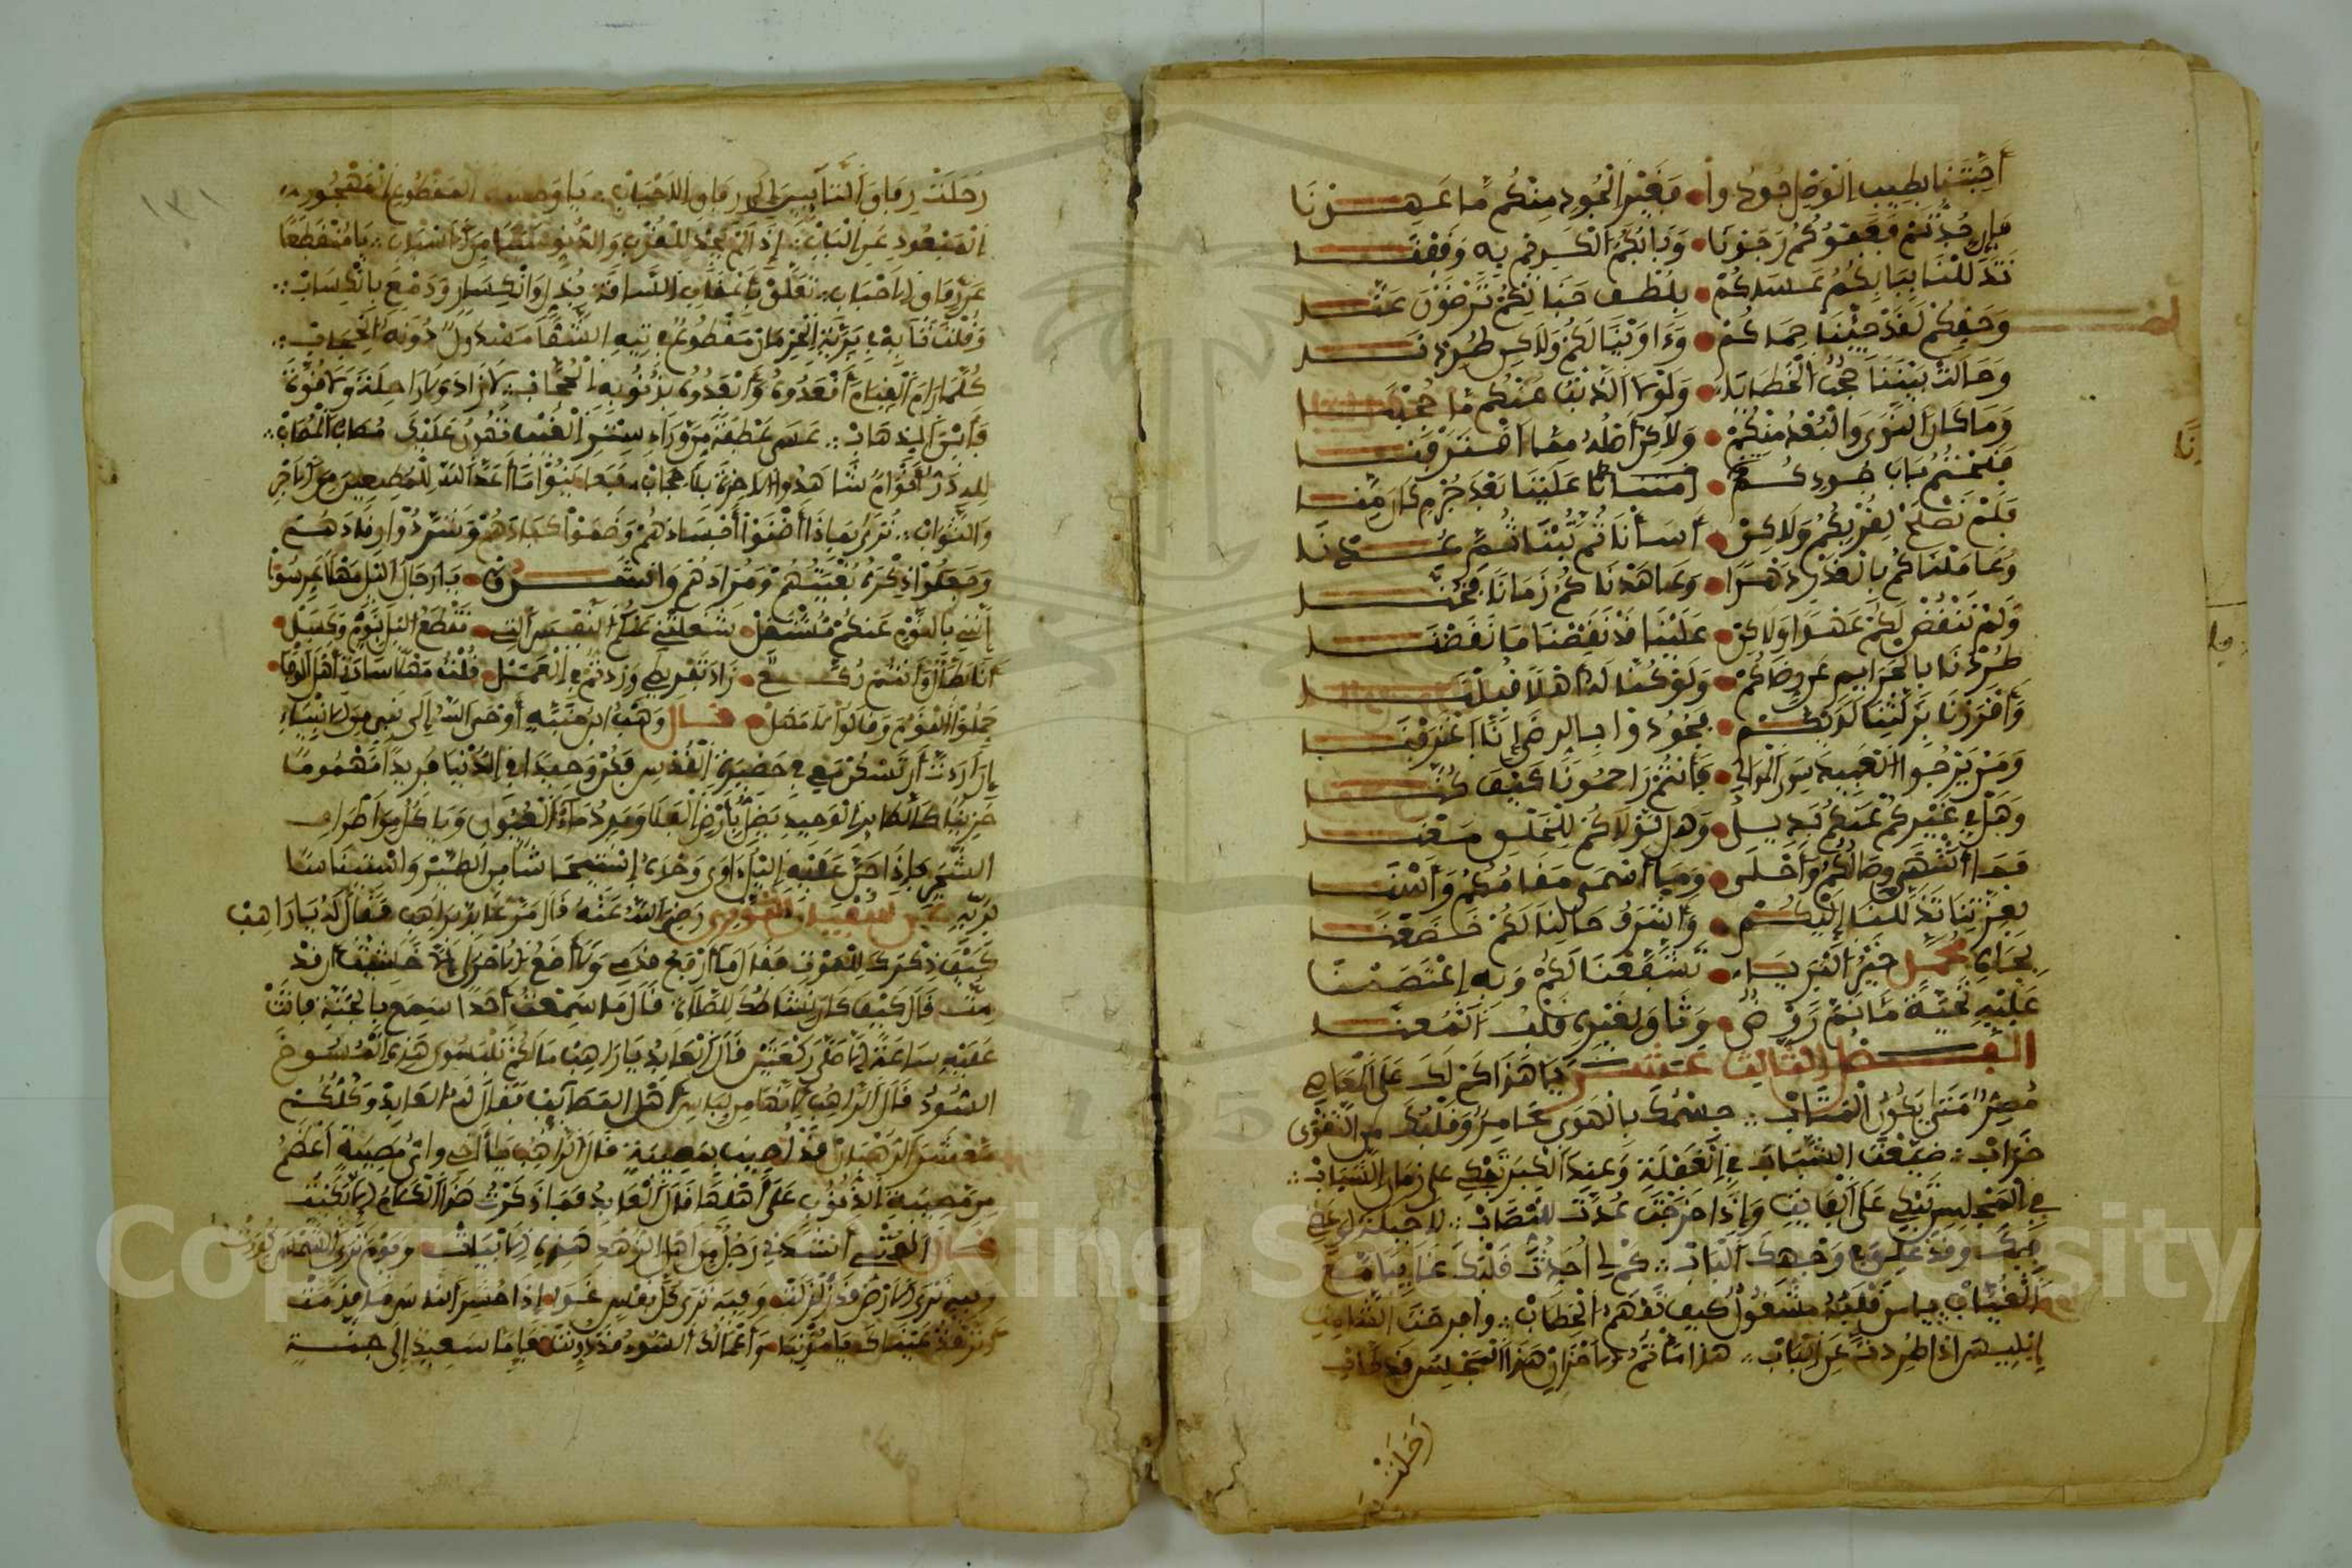 أَحِبَّتَنَا بِطِيبِ الْوَصْلِ جُودُوا • فَغَيْرَ الْجُودِ مِنْكُمْ مَا عَهِدْنَا
فَإِن جُدْتُمْ فَعَفْوُكُمْ رَجَوْنَا • وَبَابُكُمُ الْكَرِيمُ بِهِ وَقَفْنَا
تَذَلَّلْنَا بِبَابِكُمُ عَسَاكُمْ • بِلُطْفِ حَنَانِكُمْ تَرْضَوْنَ عَنَّا
وَحَقِّكُمْ لَقَدْ جِئْنَا حِمَاكُمْ • وَءَاوَيْنَا لَكُمْ وَلَاكِن طُرِدْنَا
وَحَالَتْ بَيْنَنَا حُجُبُ الْخَطَايَا • وَلَوْلَا الذَّنْبُ عَنْكُم مَا حُجِبْنَا
وَمَا كَانَ النَّوَى وَالْبُعْدُ مِنْكُمْ • وَلَاكِنْ أَصْلُهُ مِمَّا اقْتَرَفْنَا
فَتَحْتُمْ بَابَ جُودِكُمُ امْتِنَانًا • عَلَيْنَا بَعْدَ جُرْمٍ كَانَ مِنَّا
فَلَمْ نَصْلُحْ لِقُرْبِكُمْ وَلَاكِنْ • أَسَأْنَا ثُمَّ تُبْنَا ثُمَّ عُدْنَا
وَعَامَلْنَاكُمْ بِالْغَدْرِ دَهْرًا • وَعَاهَدْنَاكُمْ زَمَانًا فَخُنَّا
وَلَمْ نَنْقُضْ لَكُمْ عَهْدًا وَلَاكِنْ • عَلَيْنَا قَدْ نَقَضْنَا مَا نَقَضْنَا
طُرِدْنَا بِالْجَرَائِمِ عَن رِضَاكُمْ • وَلَوْ كُنَّا لَهُ أَهْلًا قُبِلْنَا
وَأَقْرَرْنَا بِزَلَّتِنَا لَدَيْكُمْ • فَجُودُوا بِالرِّضَى إِنَّا اعْتَرَفْنَا
وَمَنْ يَرْجُوا الْعَبِيدُ سِوَى الْمَوَالِي • فَأَنْتُمْ رَاحِمُونَا كَيْفَ كُنَّا
وَهَلْ فِي غَيْرِكُمْ عَنْكُمْ بَدِيلٌ • وَهَلْ لَوْلَاكُمُ لِلْخَلْقِ مَعْنَا
فَمَا أَشْهَى وِصَالَكُمُ وَأَحْلَى • وَمَا أَسْمَى مَقَامَكُمُ وَأَسْنَا
بِعِزَّتِنَا تَذَلَّلْنَا إِلَيْكُمْ • وَأَشْرَفُ حَالِنَا لَكُمْ خَضَعْنَا
بِجَاهِ مُحَمَّدٍ خَيْرِ الْبَرَايَا • تَشَفَّعْنَا لَكُمْ وَبِهِ اعْتَصَمْنَا
عَلَيْهِ تَحِيَّةً مَا نَمَّ رَوْضٌ • وَتَاقَ لِقُرْبِهِ قَلْبُ الْمُعَنَّا
الفصل الثالث عشر يَا هَذَا كَمْ لَكَ عَلَى الْمَعَاصِي
مُصِرٌّ مَتَى يَكُونُ الْمَتَابُ ∴ جِسْمُكَ بِالْهَوَى عَامِرٌ وَقَلْبُكَ مِنَ التَّقْوَى
خَرَابٌ ∴ ضَيَّعْتَ الشَّبَابَ فِي الْغَفْلَةِ وَعِنْدَ الْكِبَرِ تَبْكِي عَلَى زَمَانِ الشَّبَابِ ∴
فِي الْمَجْلِسِ تَبْكِي عَلَى الْفَائِتِ وَإِذَا خَرَجْتَ عُدْتَ لِلتَّصَابِ ∴ لَا حِيلَةَ لِوَعْظِي
فِيكَ وَقَدْ غُلِقَ فِي وَجْهِكَ الْبَابُ ∴ كَمْ لِي أُحَدِّثُ قَلْبَكَ
الْغِيَابْ ∴ يَا مَنْ قَلْبُهُ مَشْغُولٌ كَيْفَ تَفْهَمُ الْخِطَابْ ∴ وَافَرْحَةَ الشَّامِتِ
إِبْلِيسَ إِذَا طُرِدْتَ عَنِ الْبَابْ ∴ هَذَا مَأْتَمُ الْأَحْزَانِ هَذَا الْمَجْلِسُ قَدْ طَابْ
رَحَلَتْ
رَحَلَتْ رِفَاقُ التَّائِبِينَ إِلَى رِفَاقِ الْأَحْبَابِ ∴ يَا وَحْشَةَ الْمَقْطُوعِ الْمَهْجُورِ
الْمَبْعُودِ عَنِ الْبَابْ ∴ إِذَا لَمْ يَجِدْ لِلْقُرْبِ وَالدُّنُوِّ سَبَبًا مِنَ الْأَسْبَابِ ∴ يَا مُنْقَطِعًا
عَنْ رِفَاقِ الْأَحْبَابِ ∴ تَعَلَّقْ بِأَعْقَابِ السَّاقَةِ بِذُلٍّ وَانْكِسَارٍ وَدَمْعٍ بِانْسِكَابْ ∴
وَقُلْ تَائِهٌ فِي بَرِّيَّةِ الْحِرْمَانِ مَقْطُوعٌ فِي تِيهِ الشَّقَا مَسْدُولٌ دُونَهُ الْحِجَابْ ∴
كُلَّمَا رَامَ الْقِيَامَ أَقْعَدُوهُ وَأَبْعَدُوهُ بِذُنُوبِهِ الْحُجَّابْ ∴ لَا زَادَ وَلَا رَاحِلَةَ وَلَا قُوَّةَ
فَأَيْنَ الذَّهَابْ ∴ عَسَى عَطْفَةٌ مِنْ وَرَاءِ سِتْرِ الْغَيْبِ تُهَوِّنُ عَلَيْكَ الْمُصَابْ ∴
لِلَّهِ دَرُّ أَقْوَامٍ شَاهَدُوا الْآخِرَةَ بِلَا حِجَابْ فَعَايَنُوا مَا أَعَدَّ اللَّهُ لِلْمُطِيعِينَ مِنَ الْأَجْرِ
وَالثَّوَابْ ∴ تُرَى لِمَاذَا أَضْنَوْا أَجْسَادَهُمْ وَضَمَّرُوا أَكْبَادَهُمْ وَشَرَّدُوا رُقَادَهُمْ
وَجَعَلُوا ذِكْرَهُ بُغْيَتَهُمْ وَمُرَادَهُمْ وَأَنْشَدُوا • يَا رِجَالَ اللَّيْلِ مَهْلًا عَرِّسُوا
إِنَّنِي بِالنَّوْمِ عَنْكُمْ مُشْتَغِلْ • شَغَلَتْنِي عَنْكُمُ النَّفْسُ الَّتِي • تَقْطَعُ اللَّيْلَ بِنَوْمٍ وَكَسَلْ •
أَنَا بَطَّالٌ وَأَنْتُمْ رُكَّعٌ • زَادَ تَفْرِيطِي وَزِدْتُمْ فِي الْعَمَلْ • قُلْتُ مَهْلًا سَادَةَ أَهْلِ الْوَفَا •
حَمَلُوا الْقَوْمَ وَقَالُوا لَا مَهَلْ • قال وَهْبُ بْنُ مُنَبِّهٍ أَوْحَى اللَّهُ إِلَى نَبِيٍّ مِنَ الْأَنْبِيَاءِ
إِنْ أَرَدْتَ أَنْ تَسْكُنَ مَعِي فِي حَضِيرَةِ الْقُدُسِ فَكُنْ وَحِيدًا فِي الدُّنْيَا فَرِيدًا مَهْمُومًا
حَزِينًا كَالطَّائِرِ الْوَحِيدِ يَضِلُّ بِأَرْضِ الْفَلَا وَيَرِدُ مَاءَ الْعُيُونِ وَيَأْكُلُ مِنْ أَطْرَافِ
الشَّجَرِ فَإِذَا جَنَّ عَلَيْهِ اللَّيْلُ أَوَى وَحْدَهُ اسْتِيحَاشًا مِنَ الطَّيْرِ وَاسْتِينَاسًا
بِرَبِّهِ عن سفيان الثوري رَضِيَ اللَّهُ عَنْهُ قَالَ مَرَّ عَابِدٌ بِرَاهِبٍ فَقَالَ لَهُ يَا رَاهِبْ
كَيْفَ ذِكْرُكَ لِلْمَوْتِ فَقَالَ مَا أَرْفَعُ قَدَمِي وَلَا أَضَعُ الْأُخْرَى إِلَّا خَشِيتُ أَنْ قَدْ
مِتُّ قَالَ كَيْفَ كَانَ نَشَاطُكَ لِلصَّلَاةِ قَالَ مَا سَمِعْتُ أَحَدًا سَمِعَ بِالْجَنَّةِ فَأَتَتْ
عَلَيْهِ سَاعَةٌ إِلَّا صَلَّى رَكْعَتَيْنِ قَالَ الْعَابِدُ يَا رَاهِبُ مَا لَكُمْ تَلْبَسُونَ هَذِهِ الْمُسُوحَ
السُّودَ قَالَ الرَّاهِبُ لِأَنَّهَا مِن لِبَاسِ أَهْلِ الْمَصَائِبِ فَقَالَ لَهُ الْعَابِدُ وَكُلُّكُمْ
مَعْشَرَ الرُّهْبَانِ قَدْ أُصِيبَ بِمُصِيبَةٍ قَالَ الرَّاهِبُ يَا أَخِي وَأَيُّ مُصِيبَةٍ أَعْظَمُ
مِنْ مُصِيبَةِ الذُّنُوبِ عَلَى أَهْلِهَا قَالَ الْعَابِدُ فَمَا ذَكَرْتُ هَذَا الْكَلَامَ إِلَّا بَكَيْتُ
قال أَنْشَدَنِي رَجُلٌ مِنْ أَهْلِ الزُّهْدِ هَذِهِ الْأَبْيَاتَ • وَيَوْمَ تَرَى الشَّمْسَ كُوِّرَتْ
وَفِيهِ تَرَى الْأَرْضَ قَدْ زُلْزِلَتْ • وَفِيهِ تَرَى كُلَّ نَفْسٍ غَدًا • إِذَا حُشِرَ النَّاسُ مَا قَدَّمَتْ
أَتَرْقُدُ عَيْنَاكَ يَا مُذْنِبًا • وَأَعْمَالُكَ السُّوءُ قَدْ دُوِّنَتْ • فَإِمَّا سَعِيدٌ إِلَى جَنَّةٍ
Copyright © King Saud University